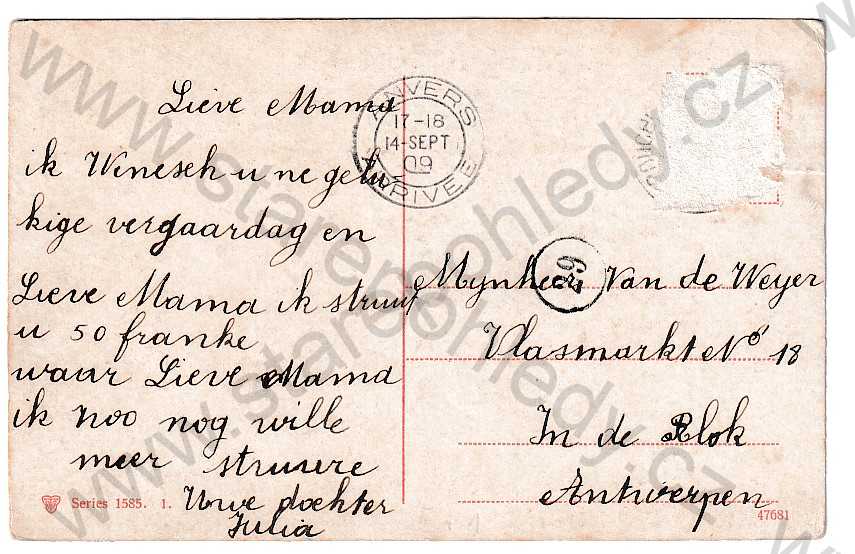 Lieve Mama
ik Winesch u ne geluk
kige vergaardag en
Lieve Mama ik struur
u 50 franke
waar Lieve Mama
ik hoo nog wille
meer struure
Uwve dochter
Julia
ANVERS
17-18
14-SEPT
09
ARRIVEE
29
Mynheer Van de Weyer
Vlasmarkt No 18
In de Blok
Antwerpen
Series 1585. 1.
47681
www.starepohledy.cz
www.starepohledy.cz